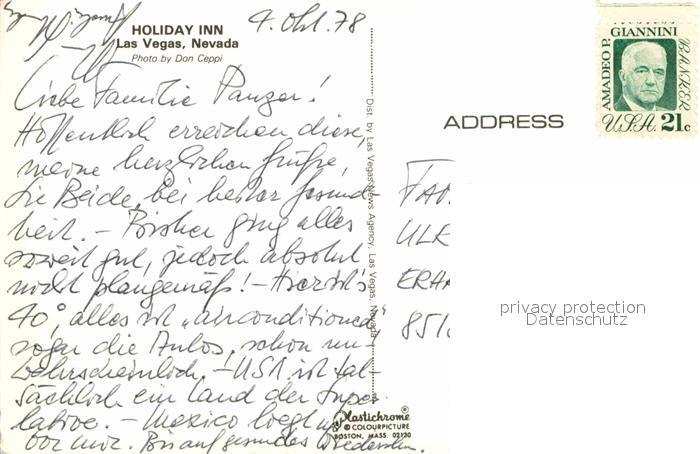 HOLIDAY INN
Las Vegas, Nevada
Photo by Don Ceppi
4. Okt. 78
Liebe Familie Panzer!
Hoffentlich erreichen diese,
meine herzlichen Grüße,
Sie Beide, bei bester Gesund-
heit. – Bisher ging alles
soweit gut, jedoch absolut
nicht plangemäß! – Hier ist's
40°, alles ist „airconditioned",
sogar die Autos, schon un-
wahrscheinlich. – USA ist tat-
sächlich ein Land der Super-
lative. – Mexico liegt
vor mir. Bis auf gesundes Wiedersehn.
Dist. by Las Vegas News Agency, Las Vegas, Nevada
Plastichrome ®
© COLOURPICTURE
BOSTON, MASS. 02130
ADDRESS
AMADEO P. GIANNINI
BANKER
U.S.A. 21c
ULR
ERHA
privacy protection
Datenschutz